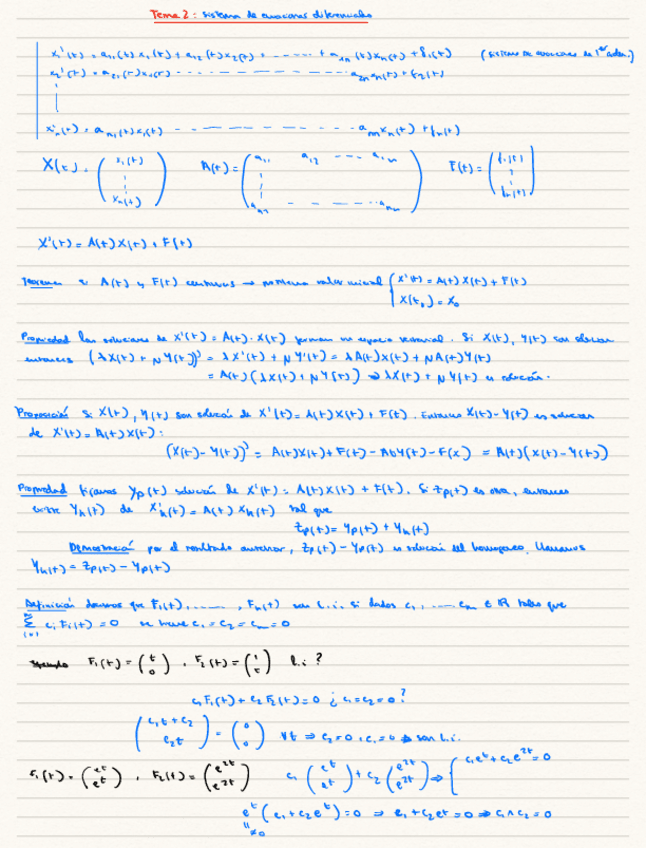 Tema 2: sistema de ecuaciones diferenciales
x₁'(t) = a₁₁(t)x₁(t) + a₁₂(t)x₂(t) + ------ + a₁ₙ(t)xₙ(t) + f₁(t) (sistema de ecuaciones de 1er orden)
x₂'(t) = a₂₁(t)x₁(t) ------ a₂ₙxₙ(t) + f₂(t)
xₙ'(t) = aₙ₁(t)x₁(t) ------ aₙₙxₙ(t) + fₙ(t)
X(t) = (x₁(t) ⋮ xₙ(t)) A(t) = (a₁₁ a₁₂ --- a₁ₙ ⋮ aₙ₁ ------ aₙₙ) F(t) = (f₁(t) ⋮ fₙ(t))
X'(t) = A(t)X(t) + F(t)
Teorema si A(t) y F(t) continuas → problema valor inicial { X'(t) = A(t)X(t) + F(t)
X(t₀) = X₀
Propiedad las soluciones de X'(t) = A(t)·X(t) forman un espacio vectorial. Si X(t), Y(t) son solución
entonces (λX(t) + μY(t))' = λX'(t) + μY'(t) = λA(t)X(t) + μA(t)Y(t)
= A(t)(λX(t) + μY(t)) ⇒ λX(t) + μY(t) es solución.
Proposición Si X(t), Y(t) son solución de X'(t) = A(t)X(t) + F(t). Entonces X(t) - Y(t) es solución
de X'(t) = A(t)X(t):
(X(t) - Y(t))' = A(t)X(t) + F(t) - A(t)Y(t) - F(x) = A(t)(X(t) - Y(t))
Propiedad Yp(t) solución de X'(t) = A(t)X(t) + F(t). Si Zp(t) es otra, entonces
existe Yh(t) de X'h(t) = A(t)Xh(t) tal que
Zp(t) = Yp(t) + Yh(t)
Demostración por el resultado anterior, Zp(t) - Yp(t) es solución del homogéneo. Llamamos
Yh(t) = Zp(t) - Yp(t)
Definición decimos que F₁(t), ------, Fₙ(t) son l.i. si dados c₁, ---- cₙ ∈ ℝ tales que
∑ cᵢFᵢ(t) = 0 se tiene c₁ = c₂ = cₙ = 0
Ejemplo F₁(t) = (t 0), F₂(t) = (1 t) l.i?
c₁F₁(t) + c₂F₂(t) = 0 ¿ c₁ = c₂ = 0?
(c₁t + c₂ c₂t) = (0 0) ∀t ⇒ c₂ = 0, c₁ = 0 ⇒ son l.i.
F₁(t) = (eᵗ eᵗ), F₂(t) = (e²ᵗ e²ᵗ) c₁(eᵗ eᵗ) + c₂(e²ᵗ e²ᵗ) ⇒ { c₁eᵗ + c₂e²ᵗ = 0
eᵗ(c₁ + c₂eᵗ) = 0 ⇒ c₁ + c₂eᵗ = 0 ⇒ c₁ ∧ c₂ = 0
≠0